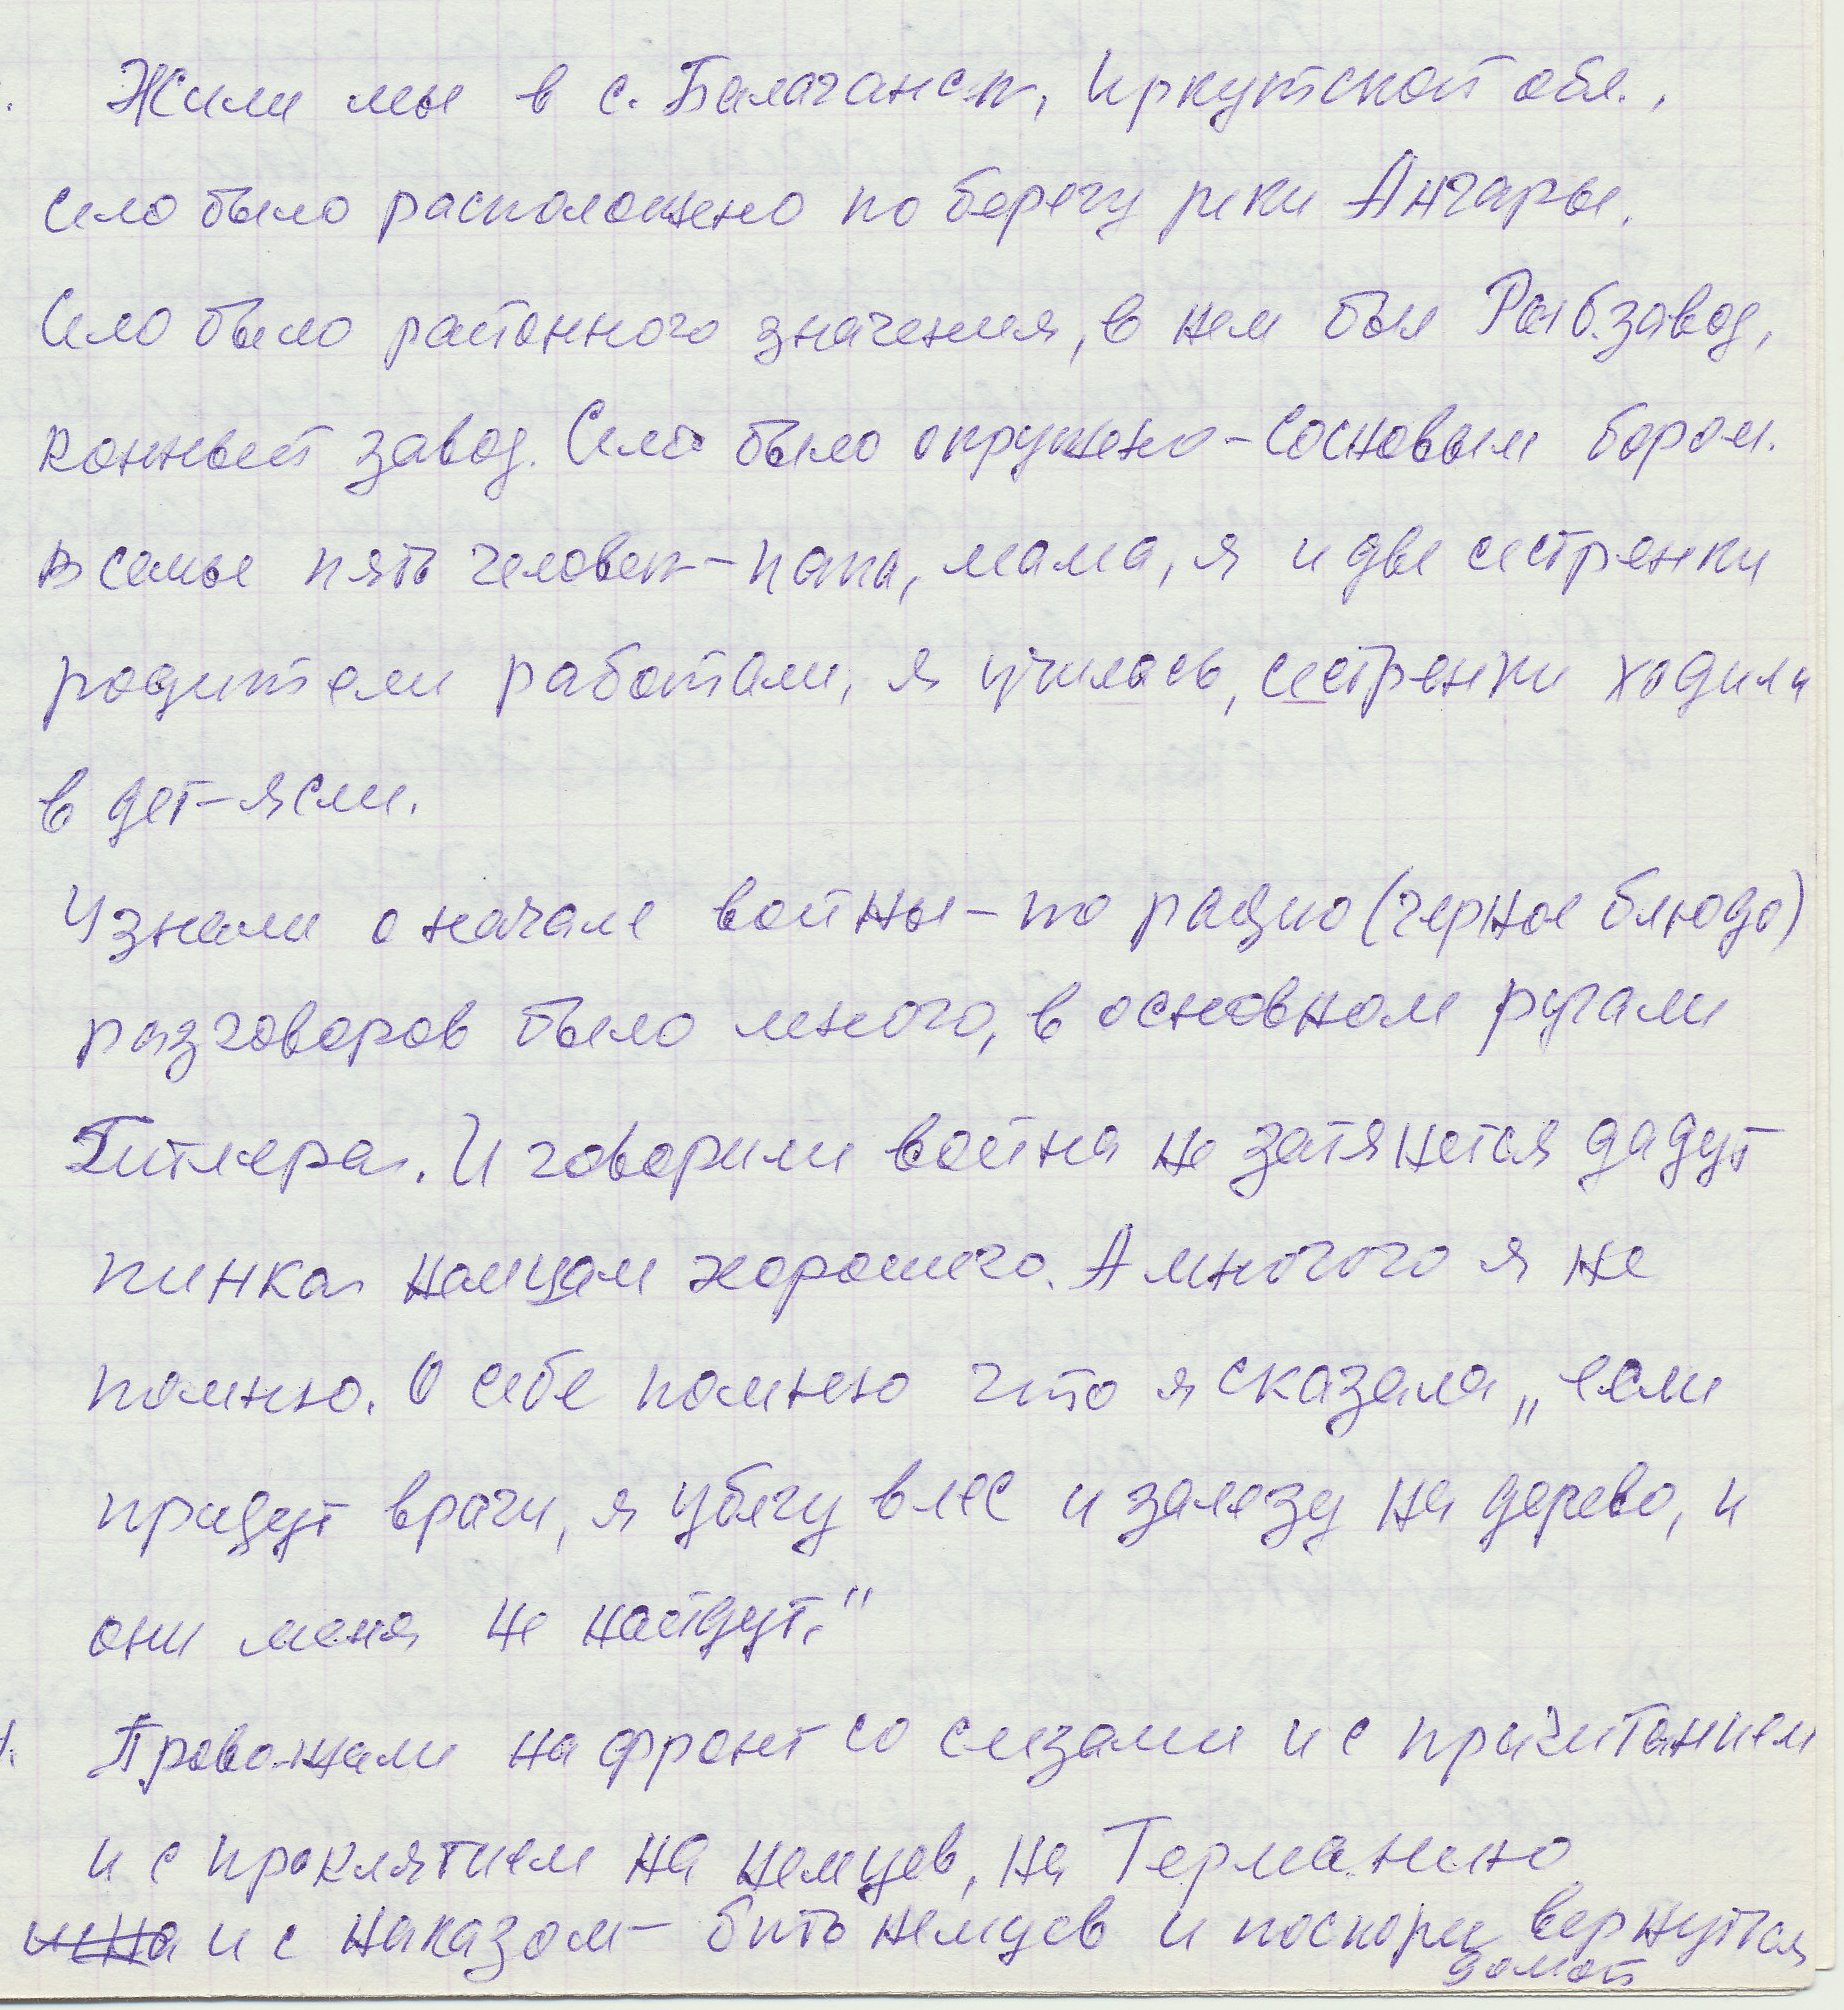 Жили мы в с. Балаганск, Иркутской обл.,
село было расположено по берегу реки Ангары.
Село было районного значения, в нем был Рыб.завод,
конный завод. Село было окружено - сосновым бором.
в семье пять человек - папа, мама, я и две сестренки
родители работали, я училась, сестренки ходили
в дет-ясли.
Узнали о начале войны - по радио (черное блюдо)
разговоров было много, в основном ругали
Гитлера. И говорили война не затянется дадут
пинка немцам хорошего. А многого я не
помню. О себе помню что я сказала „если
придут враги, я убегу в лес и залезу на дерево, и
они меня не найдут."
Провожали на фронт со слезами и с причитанием
и с проклятием на немцев, на Германию
и с наказом - бить немцев и поскорее вернутся
домой